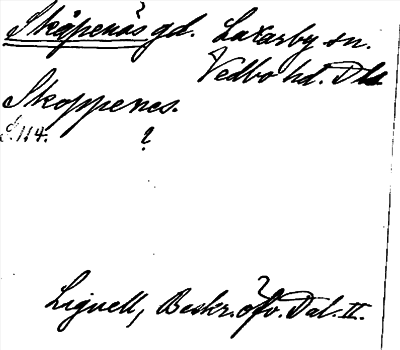 Skåpenäs gd. Laxarby sn.
Vedbo hd. Dld
Skoppenes.
S. 114. ?
Lignell, Beskr. öfv. Dal. II.